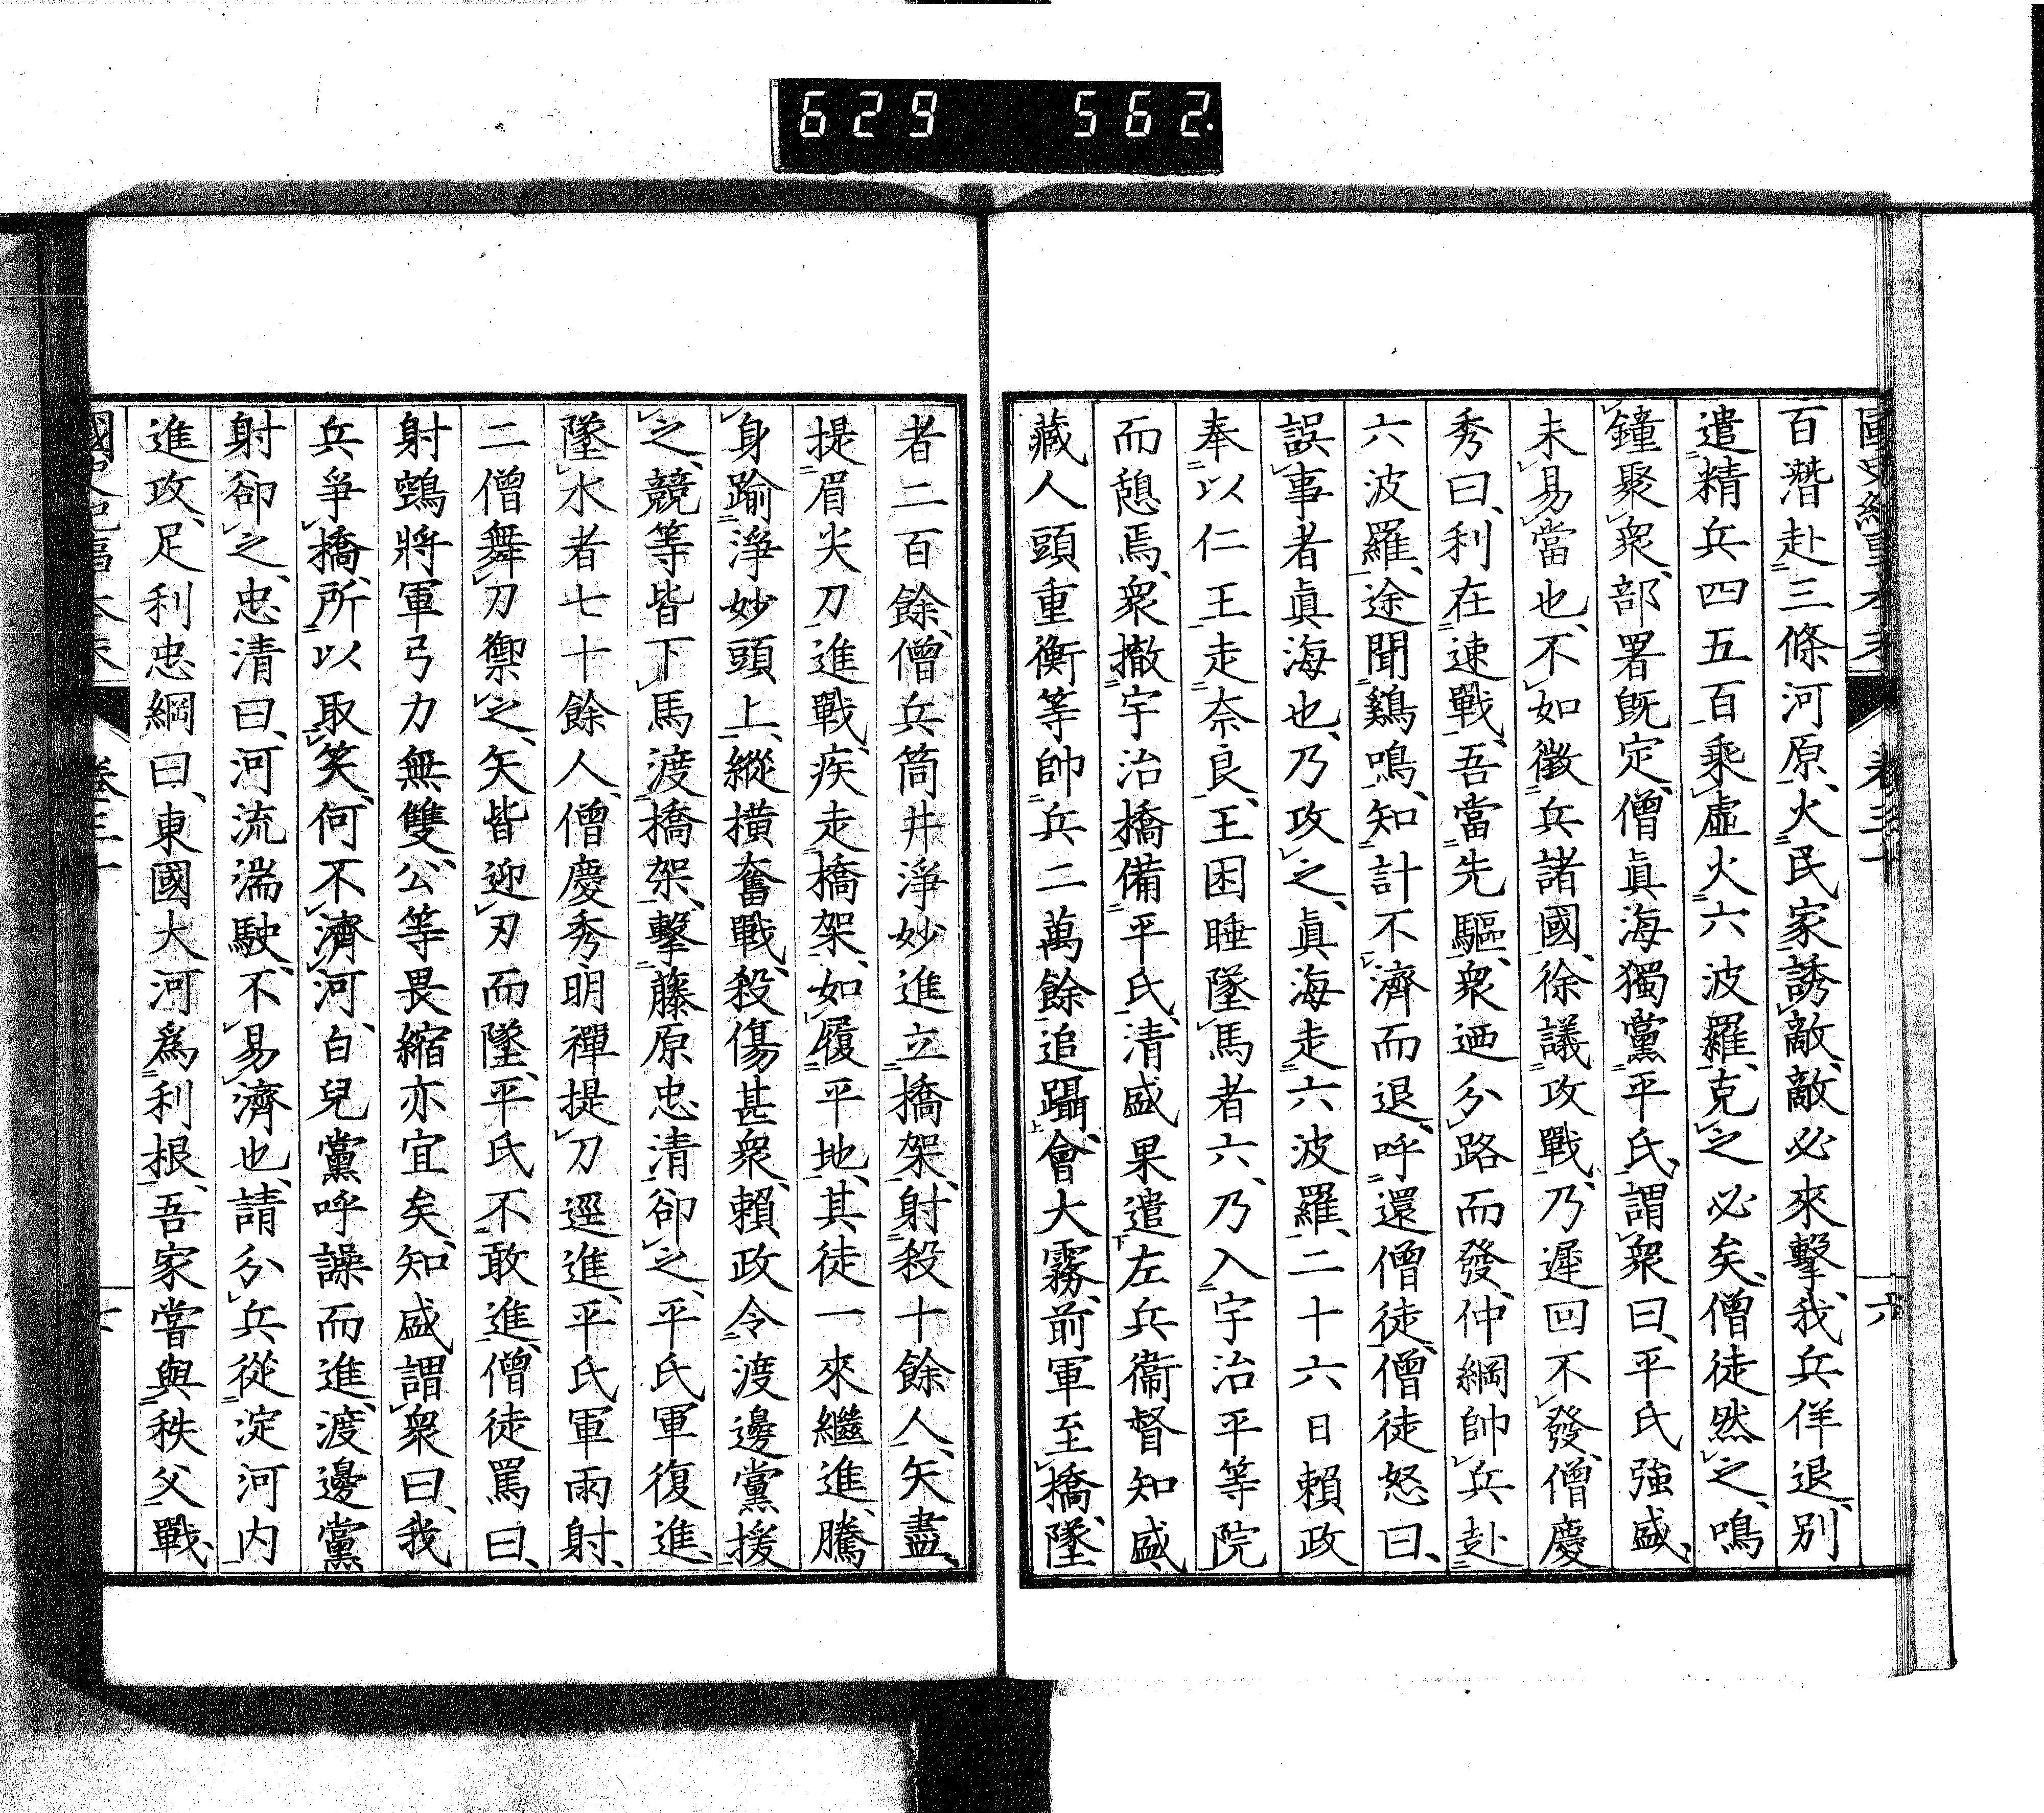 629 562.
國史紀事本末 卷三十 六
百潛赴三條河原、火民家誘敵、敵必來擊、我兵佯退、別
遣精兵四五百乘虛火六波羅、克之必矣、僧徒然之、鳴
鐘聚衆、部署既定、僧眞海獨黨平氏、謂衆曰、平氏強盛、
未易當也、不如徵兵諸國、徐議攻戰、乃遲回不發、僧慶
秀曰、利在速戰、吾當先驅、衆迺分路而發、仲綱帥兵赴
六波羅、途聞鷄鳴、知計不濟而退、呼還僧徒、僧徒怒曰、
誤事者眞海也、乃攻之、眞海走六波羅、二十六日賴政
奉以仁王走奈良、王困睡墜馬者六、乃入宇治平等院
而憩焉、衆撤宇治橋備平氏、清盛果遣左兵衞督知盛
藏人頭重衡等帥兵二萬餘追躡、會大霧、前軍至橋、墜
者二百餘、僧兵筒井淨妙進立橋架、射殺十餘人、矢盡、
提眉尖刀進戰、疾走橋架、如履平地、其徒一來繼進、騰
身踰淨妙頭上、縱橫奮戰、殺傷甚衆、賴政令渡邊黨援
之、競等皆下馬渡橋架、擊藤原忠清卻之、平氏軍復進、
墜水者七十餘人、僧慶秀明禪提刀逕進、平氏軍雨射、
二僧舞刀禦之、矢皆迎刃而墜、平氏不敢進、僧徒罵曰、
射鵼將軍弓力無雙、公等畏縮亦宜矣、知盛謂衆曰、我
兵爭橋、所以取笑、何不濟河、白兒黨呼譟而進、渡邊黨
射卻之、忠清曰、河流湍駛、不易濟也、請分兵從淀河内
進攻、足利忠綱曰、東國大河爲利根、吾家嘗與秩父戰、
國史紀事本末 卷三十 七